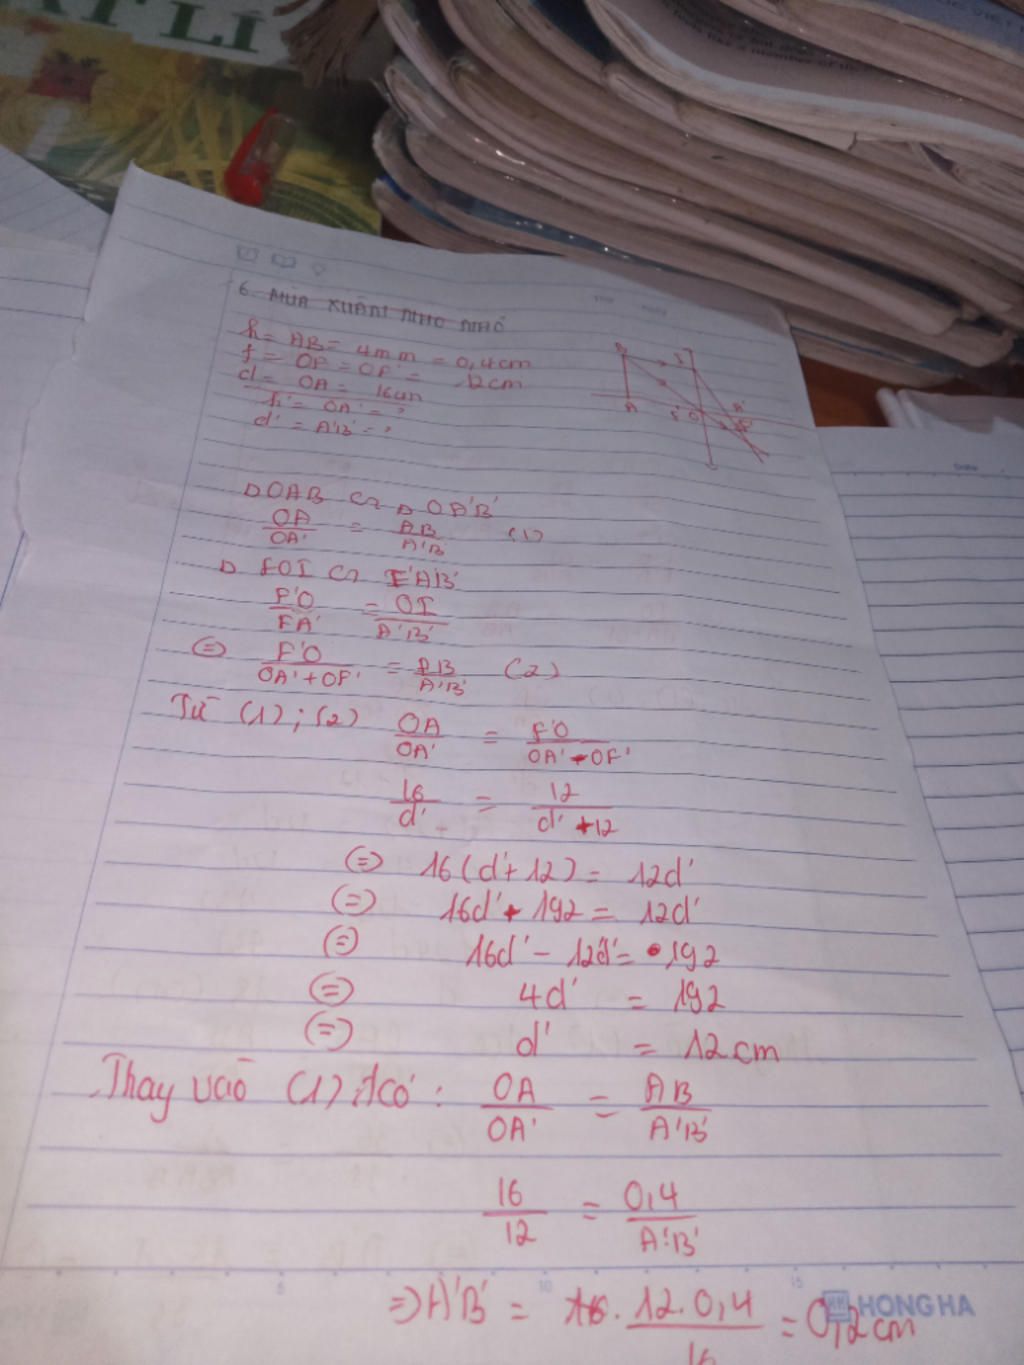 ẬT LÍ
6. MÙA XUÂN NHO NHỎ
h = AB = 4mm = 0,4cm
f = OF = OF' = 12cm
d = OA = 16cm
h' = OA' = ?
d' = A'B' = ?
B I
A F O A' B'
Δ OAB ∽ Δ OA'B'
OA/OA' = AB/A'B' (1)
Δ FOI ∽ F'A'B'
F'O/FA' = OI/A'B'
⇔ F'O/OA'+OF' = AB/A'B' (2)
Từ (1); (2) OA/OA' = F'O/OA'-OF'
16/d' = 12/d'+12
⇔ 16(d'+12) = 12d'
⇔ 16d' + 192 = 12d'
⇔ 16d' - 12d' = 192
⇔ 4d' = 192
⇔ d' = 12cm
Thay vào (1) tcó: OA/OA' = AB/A'B'
16/12 = 0,4/A'B'
⇒ A'B' = 12.0,4/16 = 0,2cm
5 10 15
HONG HA
Date